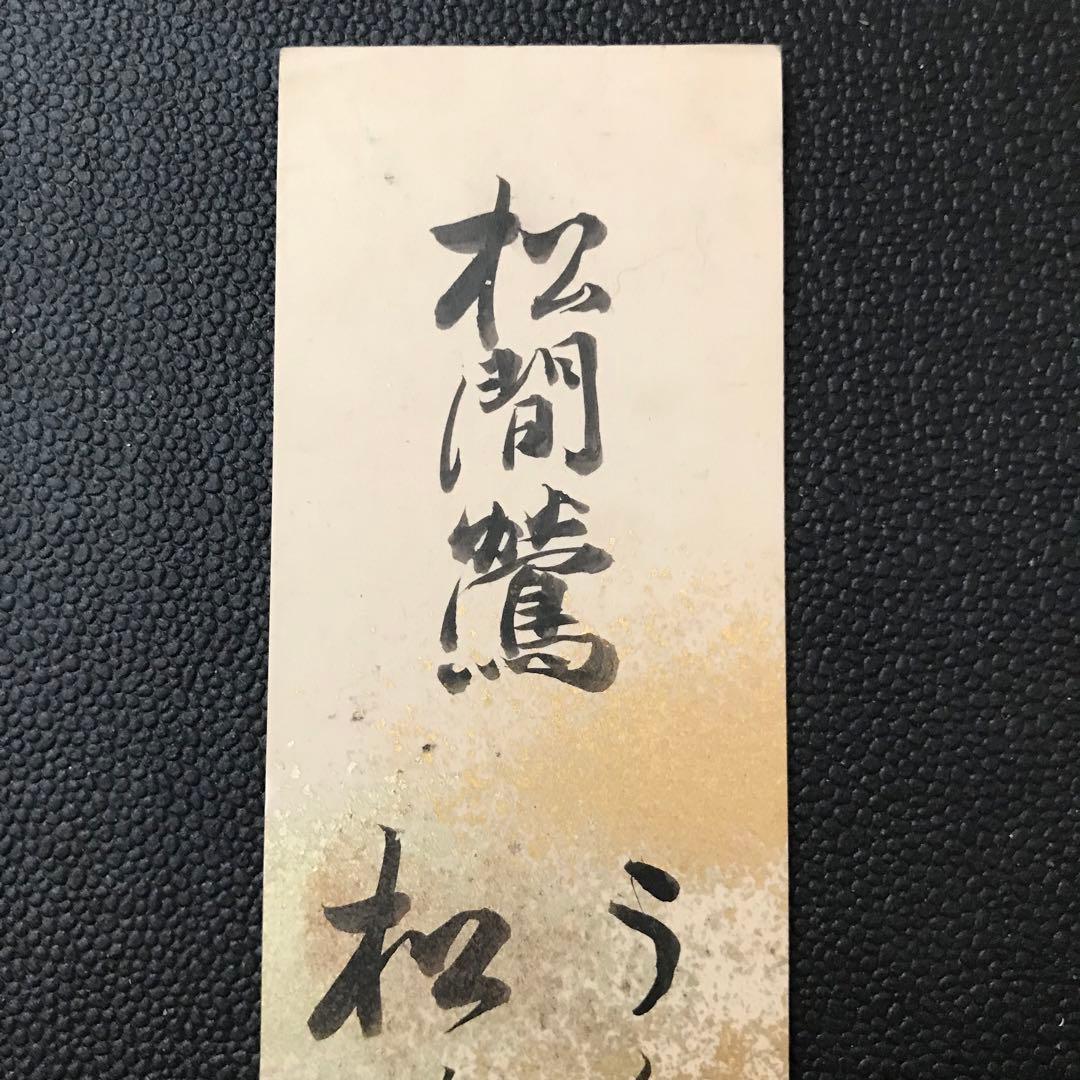 松間鶯
う
松